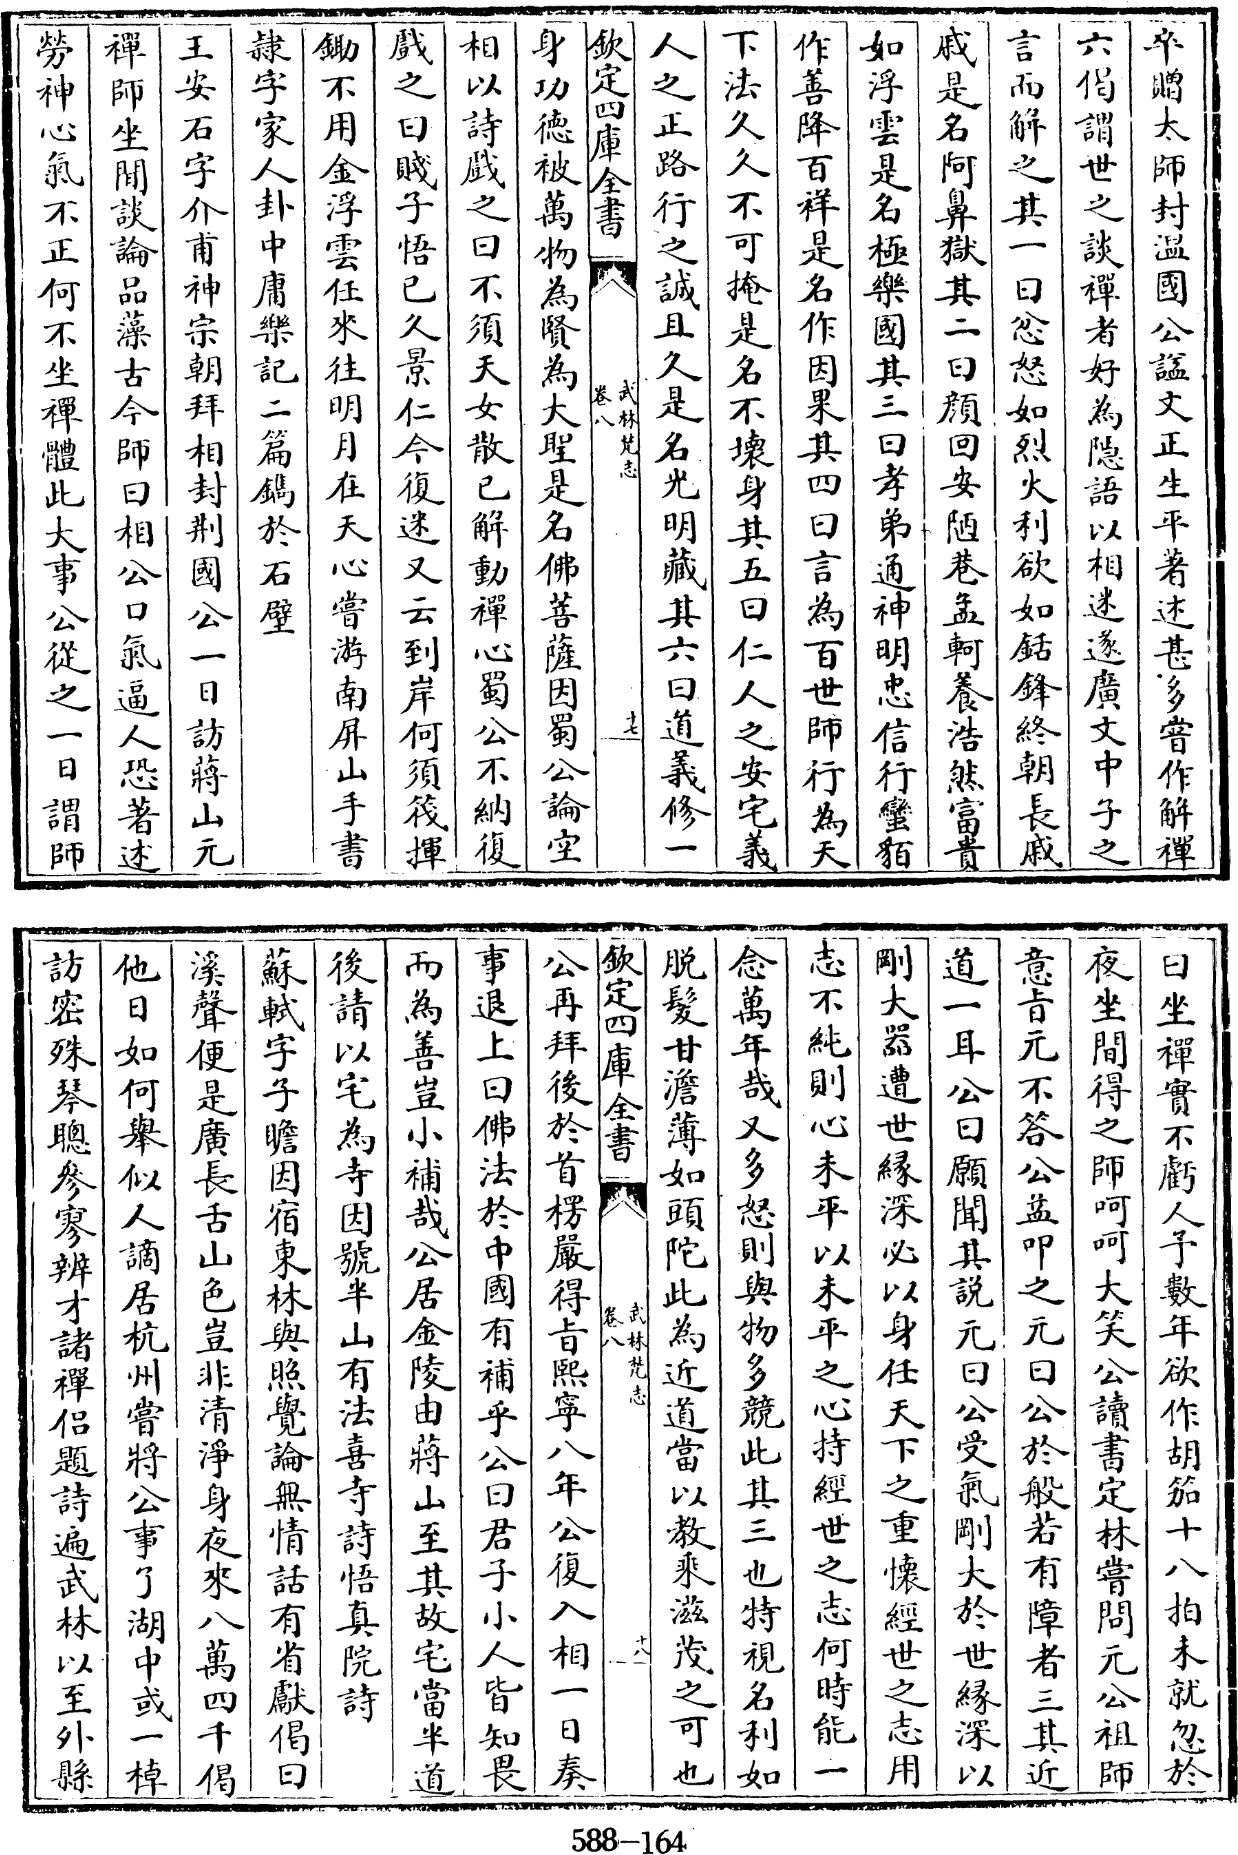 卒贈太師封温國公諡文正生平著述甚多嘗作解禪
六偈謂世之談禪者好為隱語以相迷遂廣文中子之
言而解之其一曰忿怒如烈火利欲如銛鋒終朝長戚
戚是名阿鼻獄其二曰顔回安陋巷孟軻養浩然富貴
如浮雲是名極樂國其三曰孝弟通神明忠信行蠻貊
作善降百祥是名作因果其四曰言為百世師行為天
下法久久不可掩是名不壞身其五曰仁人之安宅義
人之正路行之誠且久是名光明藏其六曰道義修一
欽定四庫全書
武林梵志
卷八
十七
身功德被萬物為賢為大聖是名佛菩薩因蜀公論空
相以詩戲之曰不須天女散已解動禪心蜀公不納復
戲之曰賤子悟已久景仁今復迷又云到岸何須筏揮
鋤不用金浮雲任來往明月在天心嘗游南屏山手書
隷字家人卦中庸樂記二篇鐫於石壁
王安石字介甫神宗朝拜相封荆國公一日訪蔣山元
禪師坐間談論品藻古今師曰相公口氣逼人恐著述
勞神心氣不正何不坐禪體此大事公從之一日謂師
曰坐禪實不虧人予數年欲作胡笳十八拍未就忽於
夜坐間得之師呵呵大笑公讀書定林嘗問元公祖師
意旨元不答公益叩之元曰公於般若有障者三其近
道一耳公曰願聞其説元曰公受氣剛大於世緣深以
剛大器遭世緣深必以身任天下之重懷經世之志用
志不純則心未平以未平之心持經世之志何時能一
念萬年哉又多怒則與物多競此其三也特視名利如
脱髮甘澹薄如頭陀此為近道當以教乘滋茂之可也
欽定四庫全書
武林梵志
卷八
十八
公再拜後於首楞嚴得旨熙寧八年公復入相一日奏
事退上曰佛法於中國有補乎公曰君子小人皆知畏
而為善豈小補哉公居金陵由蔣山至其故宅當半道
後請以宅為寺因號半山有法喜寺詩悟真院詩
蘇軾字子瞻因宿東林與照覺論無情話有省獻偈曰
溪聲便是廣長舌山色豈非清淨身夜來八萬四千偈
他日如何舉似人謫居杭州嘗將公事了湖中或一棹
訪密殊琴聰參寥辨才諸禪侣題詩遍武林以至外縣
588-164